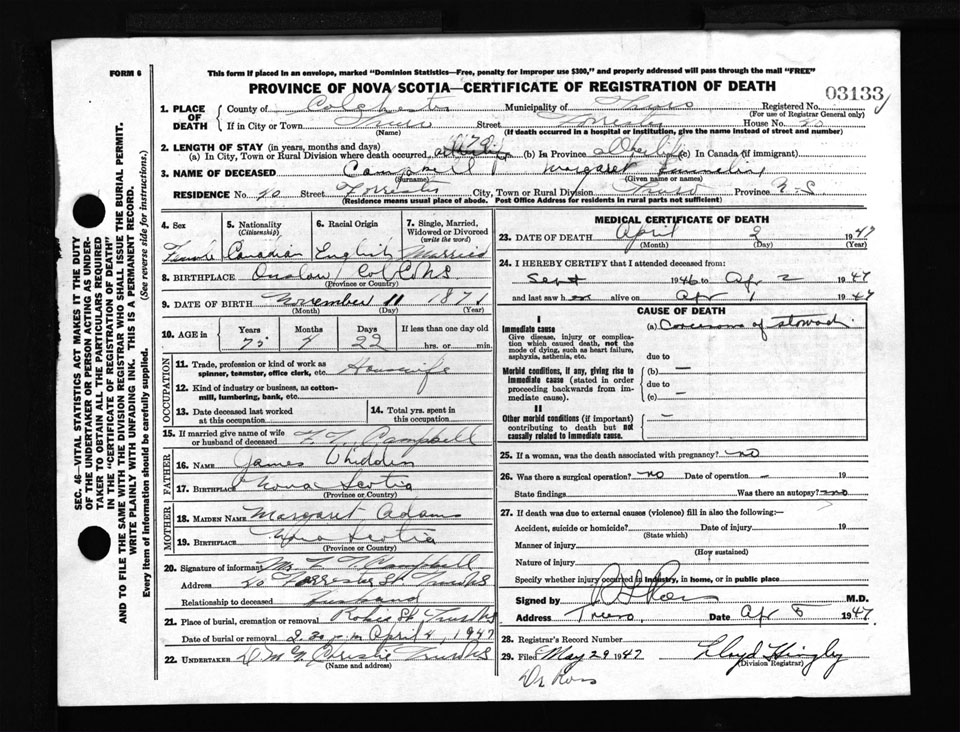 FORM 6
This form if placed in an envelope, marked "Dominion Statistics—Free, penalty for improper use $300," and properly addressed will pass through the mail "FREE"
PROVINCE OF NOVA SCOTIA—CERTIFICATE OF REGISTRATION OF DEATH
03133
1. PLACE OF DEATH
County of Colchester Municipality of Truro Registered No.
(For use of Registrar General only)
If in City or Town Truro Street Forrester House No. 20
(Name) (If death occurred in a hospital or institution, give the name instead of street and number)
2. LENGTH OF STAY (in years, months and days)
(a) In City, Town or Rural Division where death occurred, (b) In Province all her life (c) In Canada (if immigrant)
3. NAME OF DECEASED Campbell Margaret
(Surname) (Given name or names)
RESIDENCE No. 20 Street Forrester City, Town or Rural Division Truro Province N-S
(Residence means usual place of abode. Post Office Address for residents in rural parts not sufficient)
4. Sex
Female
5. Nationality
(Citizenship)
Canadian
6. Racial Origin
English
7. Single, Married, Widowed or Divorced
(write the word)
Married
8. BIRTHPLACE Onslow Col Co NS
(Province or Country)
9. DATE OF BIRTH November 11 1871
(Month) (Day) (Year)
10. AGE in Years Months Days If less than one day old
75 22 hrs. or min.
OCCUPATION
11. Trade, profession or kind of work as spinner, teamster, office clerk, etc. Housewife
12. Kind of industry or business, as cotton-mill, lumbering, bank, etc.
13. Date deceased last worked at this occupation
14. Total yrs. spent in this occupation
15. If married give name of wife or husband of deceased Campbell
FATHER
16. NAME James Whidden
17. BIRTHPLACE Nova Scotia
(Province or Country)
MOTHER
18. MAIDEN NAME Margaret Adams
19. BIRTHPLACE Nova Scotia
(Province or Country)
20. Signature of informant Campbell
Address 20 Forrester St Truro NS
Relationship to deceased husband
21. Place of burial, cremation or removal Robie St Truro NS
Date of burial or removal 2.30 p.m April 4, 1947
22. UNDERTAKER Christie Truro NS
(Name and address)
MEDICAL CERTIFICATE OF DEATH
23. DATE OF DEATH April 2 1947
(Month) (Day) (Year)
24. I HEREBY CERTIFY that I attended deceased from:
Sept 1946 to Apr 2 1947
and last saw her alive on Apr 1 1947
CAUSE OF DEATH
I
Immediate cause (a) Carcinoma of stomach
Give disease, injury or complication which caused death, not the mode of dying, such as heart failure, asphyxia, asthenia, etc.
due to
Morbid conditions, if any, giving rise to immediate cause (stated in order proceeding backwards from immediate cause).
(b) —
due to
(c) —
II
Other morbid conditions (if important) contributing to death but not causally related to immediate cause.
—
25. If a woman, was the death associated with pregnancy? no
26. Was there a surgical operation? no Date of operation — 19
State findings Was there an autopsy? no
27. If death was due to external causes (violence) fill in also the following:—
Accident, suicide or homicide? Date of injury 19
(State which)
Manner of injury
(How sustained)
Nature of injury
Specify whether injury occurred in industry, in home, or in public place
Signed by Ross M.D.
Address Truro, Date Apr 8 1947
28. Registrar's Record Number
29. Filed May 29 1947 Lloyd Hingley
(Division Registrar)
Dr Ross
SEC. 46—VITAL STATISTICS ACT MAKES IT THE DUTY
OF THE UNDERTAKER OR PERSON ACTING AS UNDER-
TAKER TO OBTAIN ALL THE PARTICULARS REQUIRED
IN THE "CERTIFICATE OF REGISTRATION OF DEATH"
AND TO FILE THE SAME WITH THE DIVISION REGISTRAR WHO SHALL ISSUE THE BURIAL PERMIT.
WRITE PLAINLY WITH UNFADING INK. THIS IS A PERMANENT RECORD.
Every item of Information should be carefully supplied. (See reverse side for instructions.)